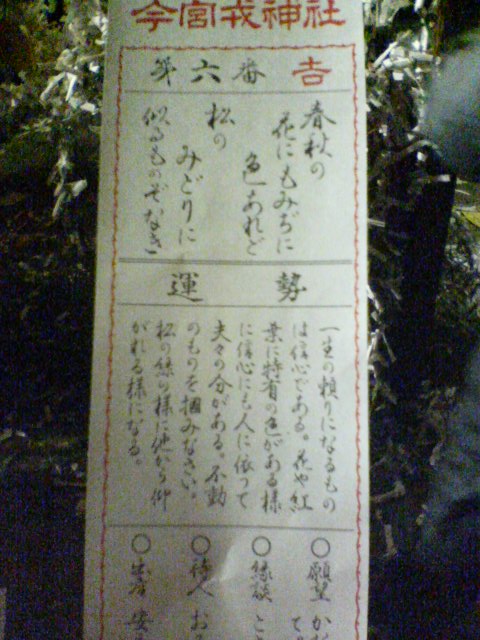 今宮戎神社
第六番 吉
春秋の
花にもみぢに
色あれど
松の
みどりに
似るものぞなき
運勢
一生の頼りになるもの
は信心である。花や紅
葉に特有の色がある様
に信心にも人に依って
夫々の分がある。不動
のものを掴みなさい。
松の緑の様に他から仰
がれる様になる。
○願望
○縁談
○待人